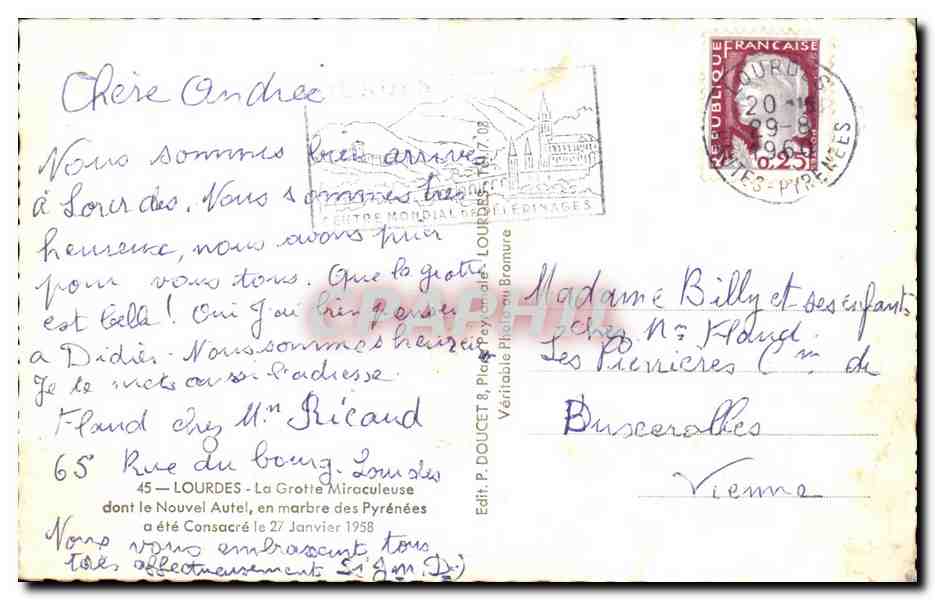 Chère Andrée
Nous sommes bien arrivé
à Lourdes. Nous sommes très
heureux, nous avons prier
pour vous tous. Que la grotte
est belle! Oui J'ai bien penser
a Didier. Nous sommes heureux
Je te mets aussi l'adresse
Fland chez Mm Ricaud
65 Rue du bourg. Lourdes
45 — LOURDES - La Grotte Miraculeuse
dont le Nouvel Autel, en marbre des Pyrénées
a été Consacré le 27 Janvier 1958
Nous vous embrassent tous
très affectueusement
CENTRE MONDIAL DE PÈLERINAGES
Edit. P. DOUCET 8, Place Peyramale - LOURDES
Véritable Photo au Bromure
RÉPUBLIQUE FRANÇAISE
0,25F
LOURDES
20
29-8
196
HAUTES-PYRENEES
Madame Billy et ses enfants
chez Mme Fland.
Les Pierrières Cm de
Busserolles
Vienne
CPAPHIL